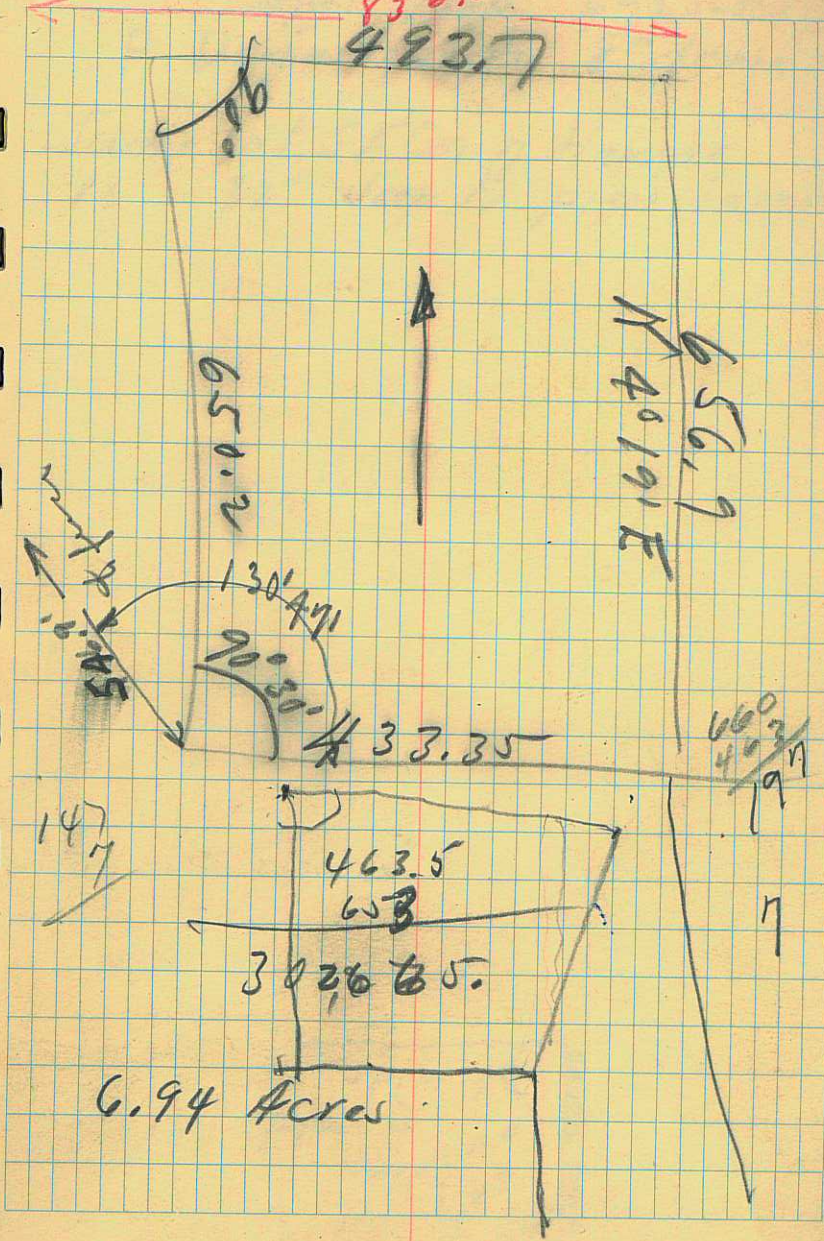 493.7
90°
650.2
656.9
N 4° 19' E
130° 47'
90° 30'
433.35
660
463
197
147
7
7
463.5
653
302,665.
6.94 Acres